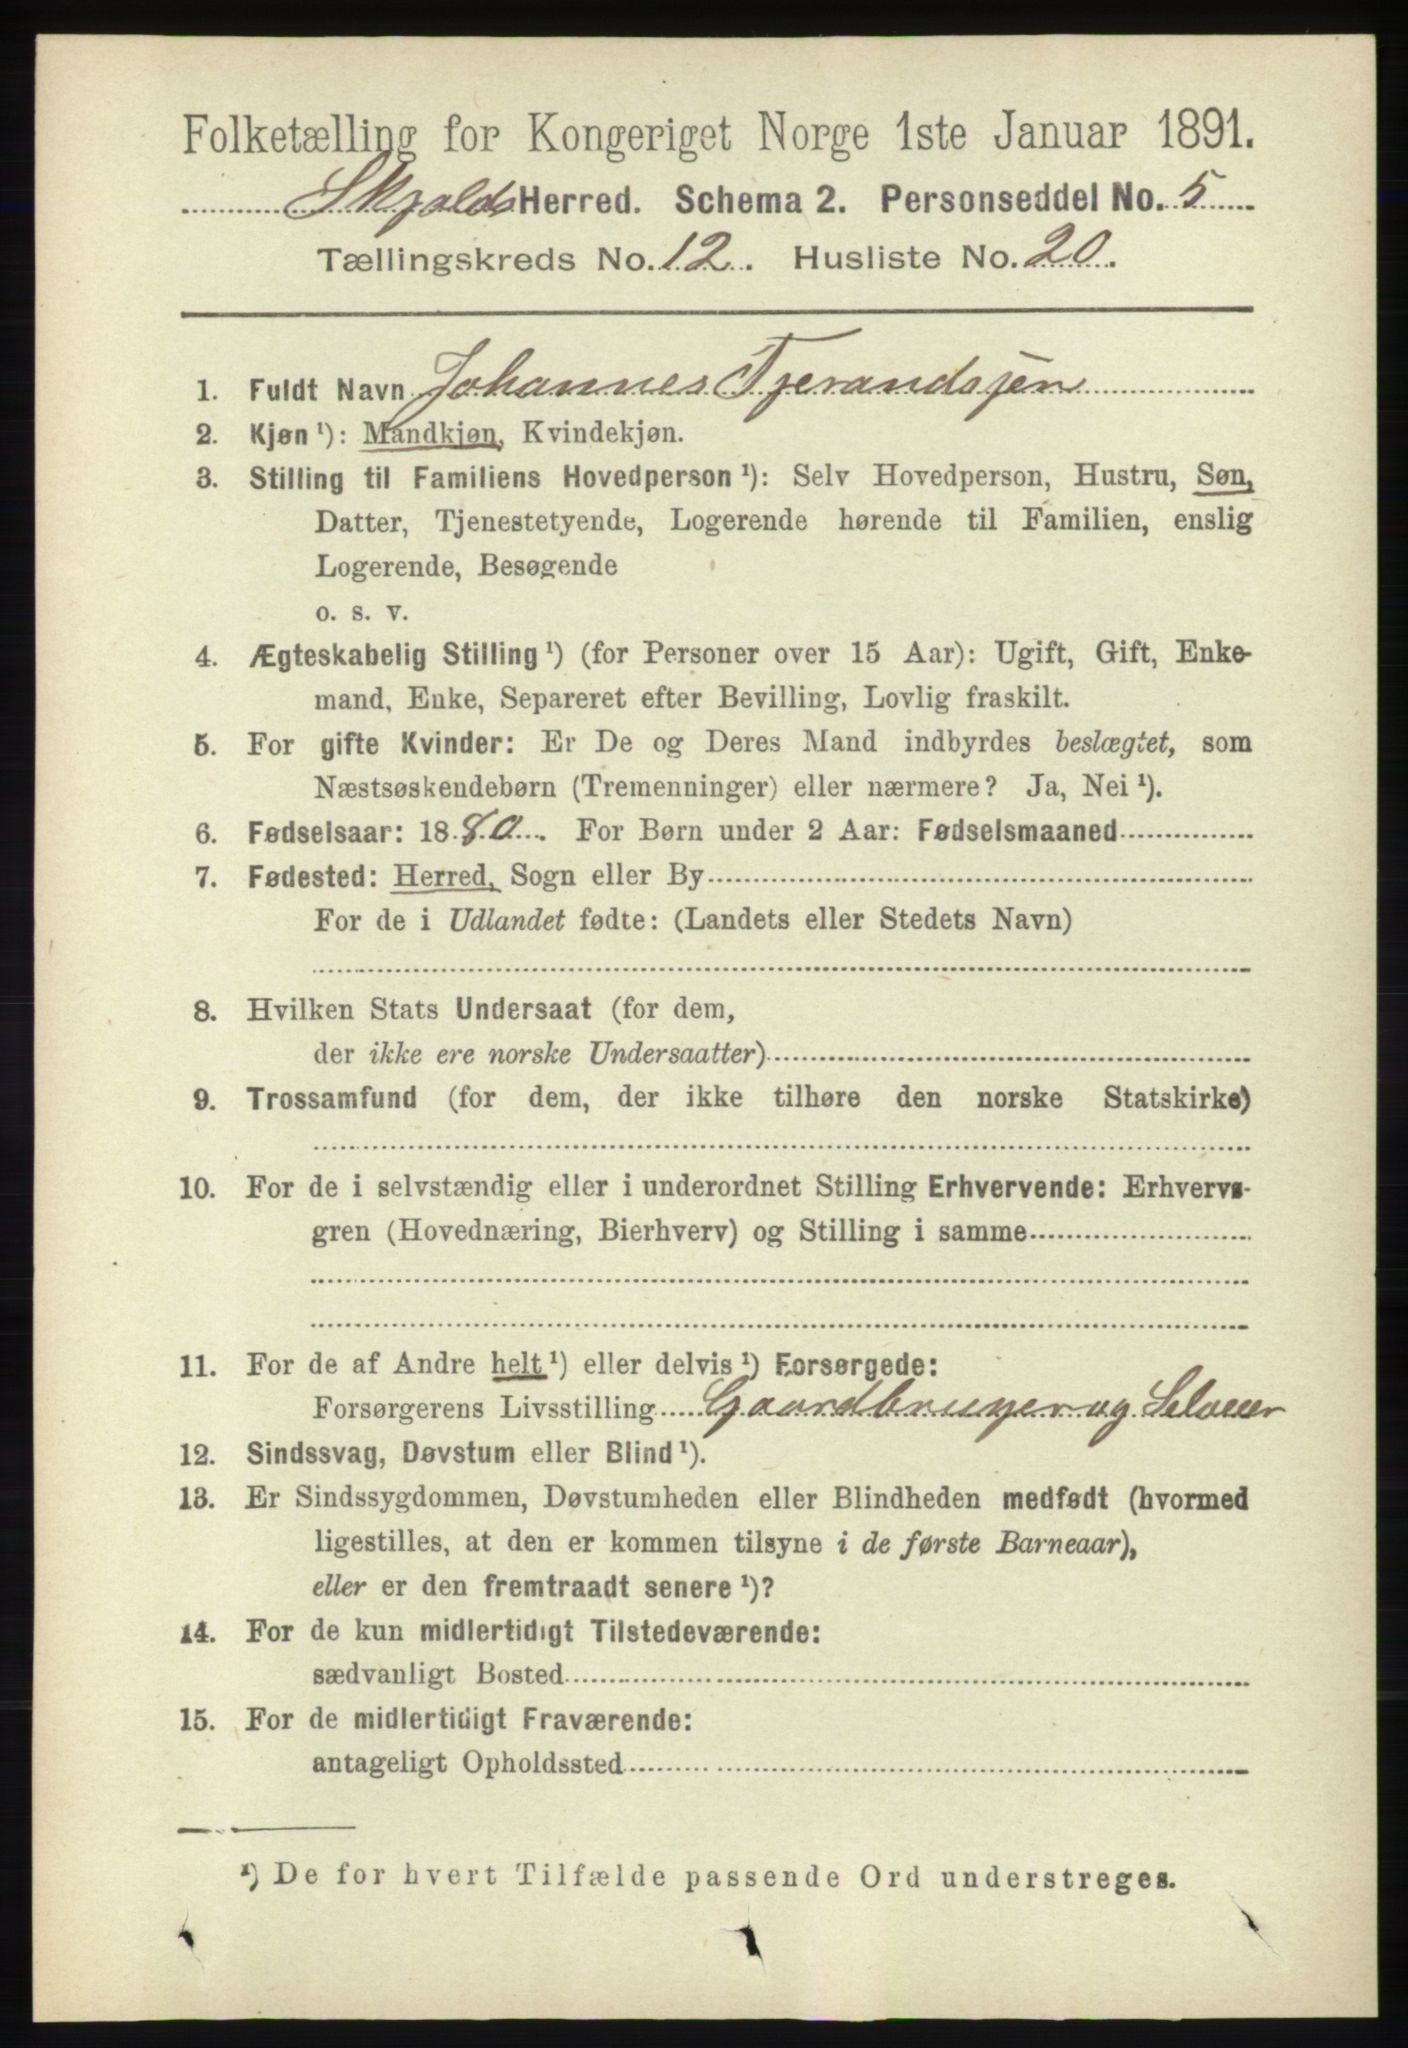 Folketælling for Kongeriget Norge 1ste Januar 1891.
Skjolds Herred. Schema 2. Personseddel No. 5
Tællingskreds No. 12. Husliste No. 20.
1. Fuldt Navn Johannes Tjerandsen
2. Kjøn ¹): Mandkjøn, Kvindekjøn.
3. Stilling til Familiens Hovedperson ¹): Selv Hovedperson, Hustru, Søn,
Datter, Tjenestetyende, Logerende hørende til Familien, enslig
Logerende, Besøgende
o. s. v.
4. Ægteskabelig Stilling ¹) (for Personer over 15 Aar): Ugift, Gift, Enke-
mand, Enke, Separeret efter Bevilling, Lovlig fraskilt.
5. For gifte Kvinder: Er De og Deres Mand indbyrdes beslægtet, som
Næstsøskendebørn (Tremenninger) eller nærmere? Ja, Nei ¹).
6. Fødselsaar: 1880. For Børn under 2 Aar: Fødselsmaaned
7. Fødested: Herred, Sogn eller By
For de i Udlandet fødte: (Landets eller Stedets Navn)
8. Hvilken Stats Undersaat (for dem,
der ikke ere norske Undersaatter)
9. Trossamfund (for dem, der ikke tilhøre den norske Statskirke)
10. For de i selvstændig eller i underordnet Stilling Erhvervende: Erhvervs-
gren (Hovednæring, Bierhverv) og Stilling i samme
11. For de af Andre helt ¹) eller delvis ¹) Forsørgede:
Forsørgerens Livsstilling Gaardbruger og Selveier
12. Sindssvag, Døvstum eller Blind ¹).
13. Er Sindssygdommen, Døvstumheden eller Blindheden medfødt (hvormed
ligestilles, at den er kommen tilsyne i de første Barneaar),
eller er den fremtraadt senere ¹)?
14. For de kun midlertidigt Tilstedeværende:
sædvanligt Bosted
15. For de midlertidigt Fraværende:
antageligt Opholdssted
¹) De for hvert Tilfælde passende Ord understreges.